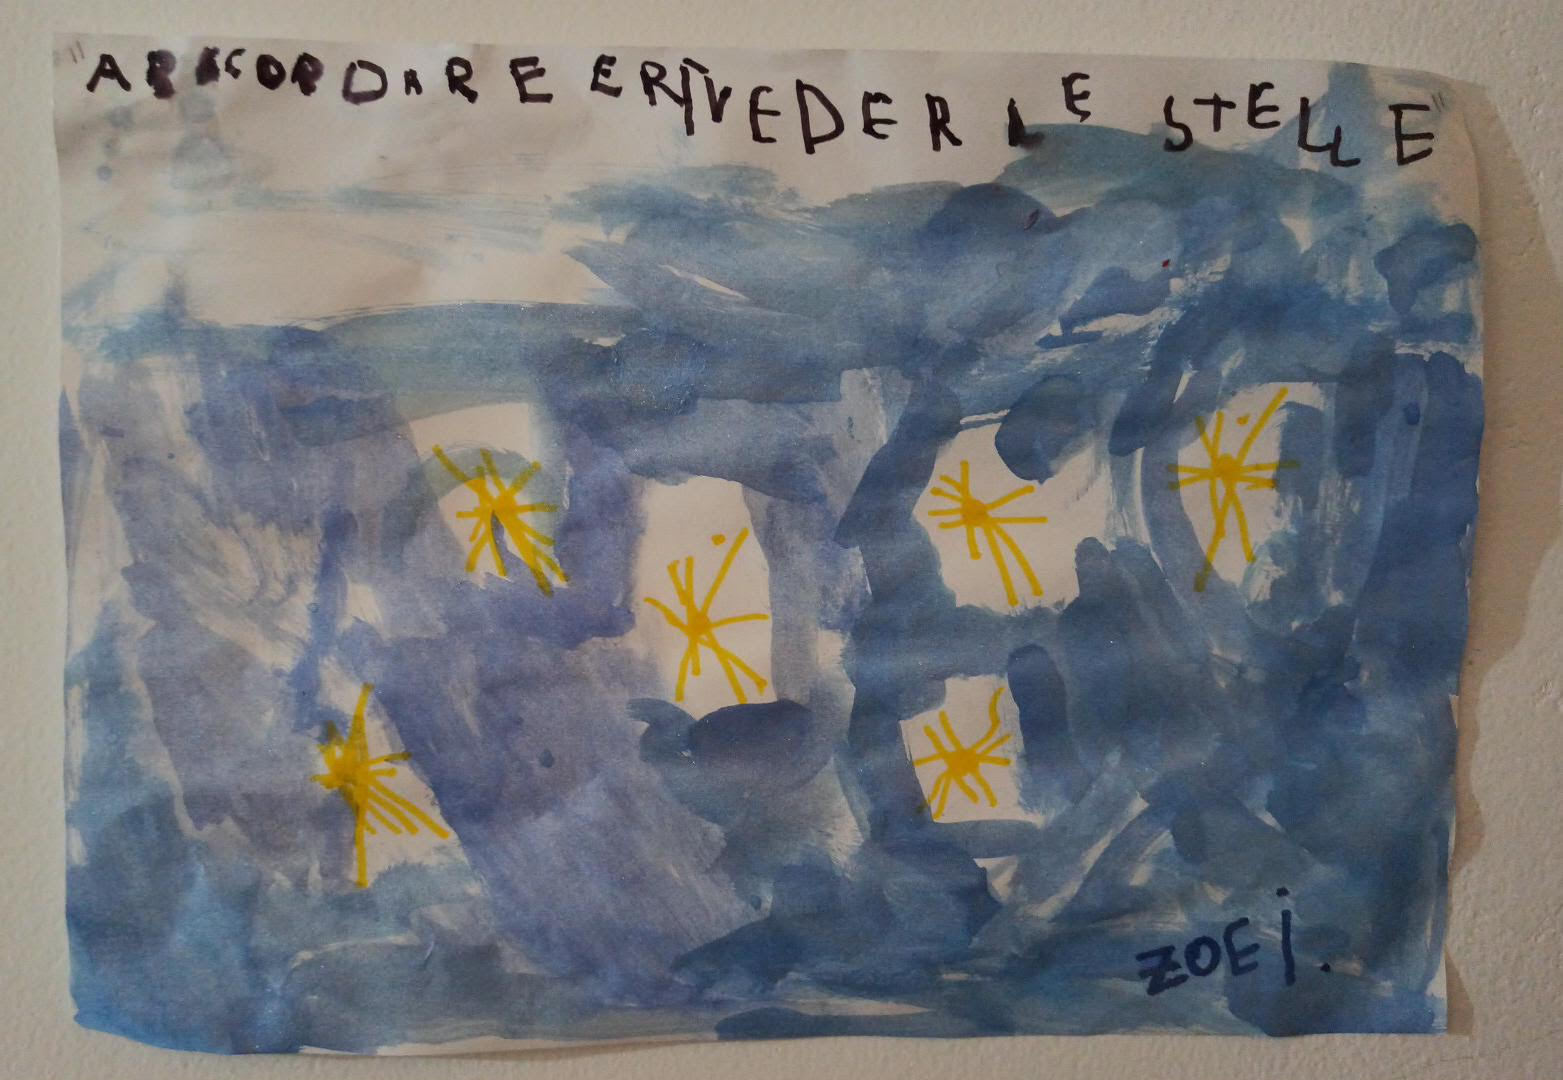 "A RICORDARE E RIVEDER LE STELLE"
ZOE i.